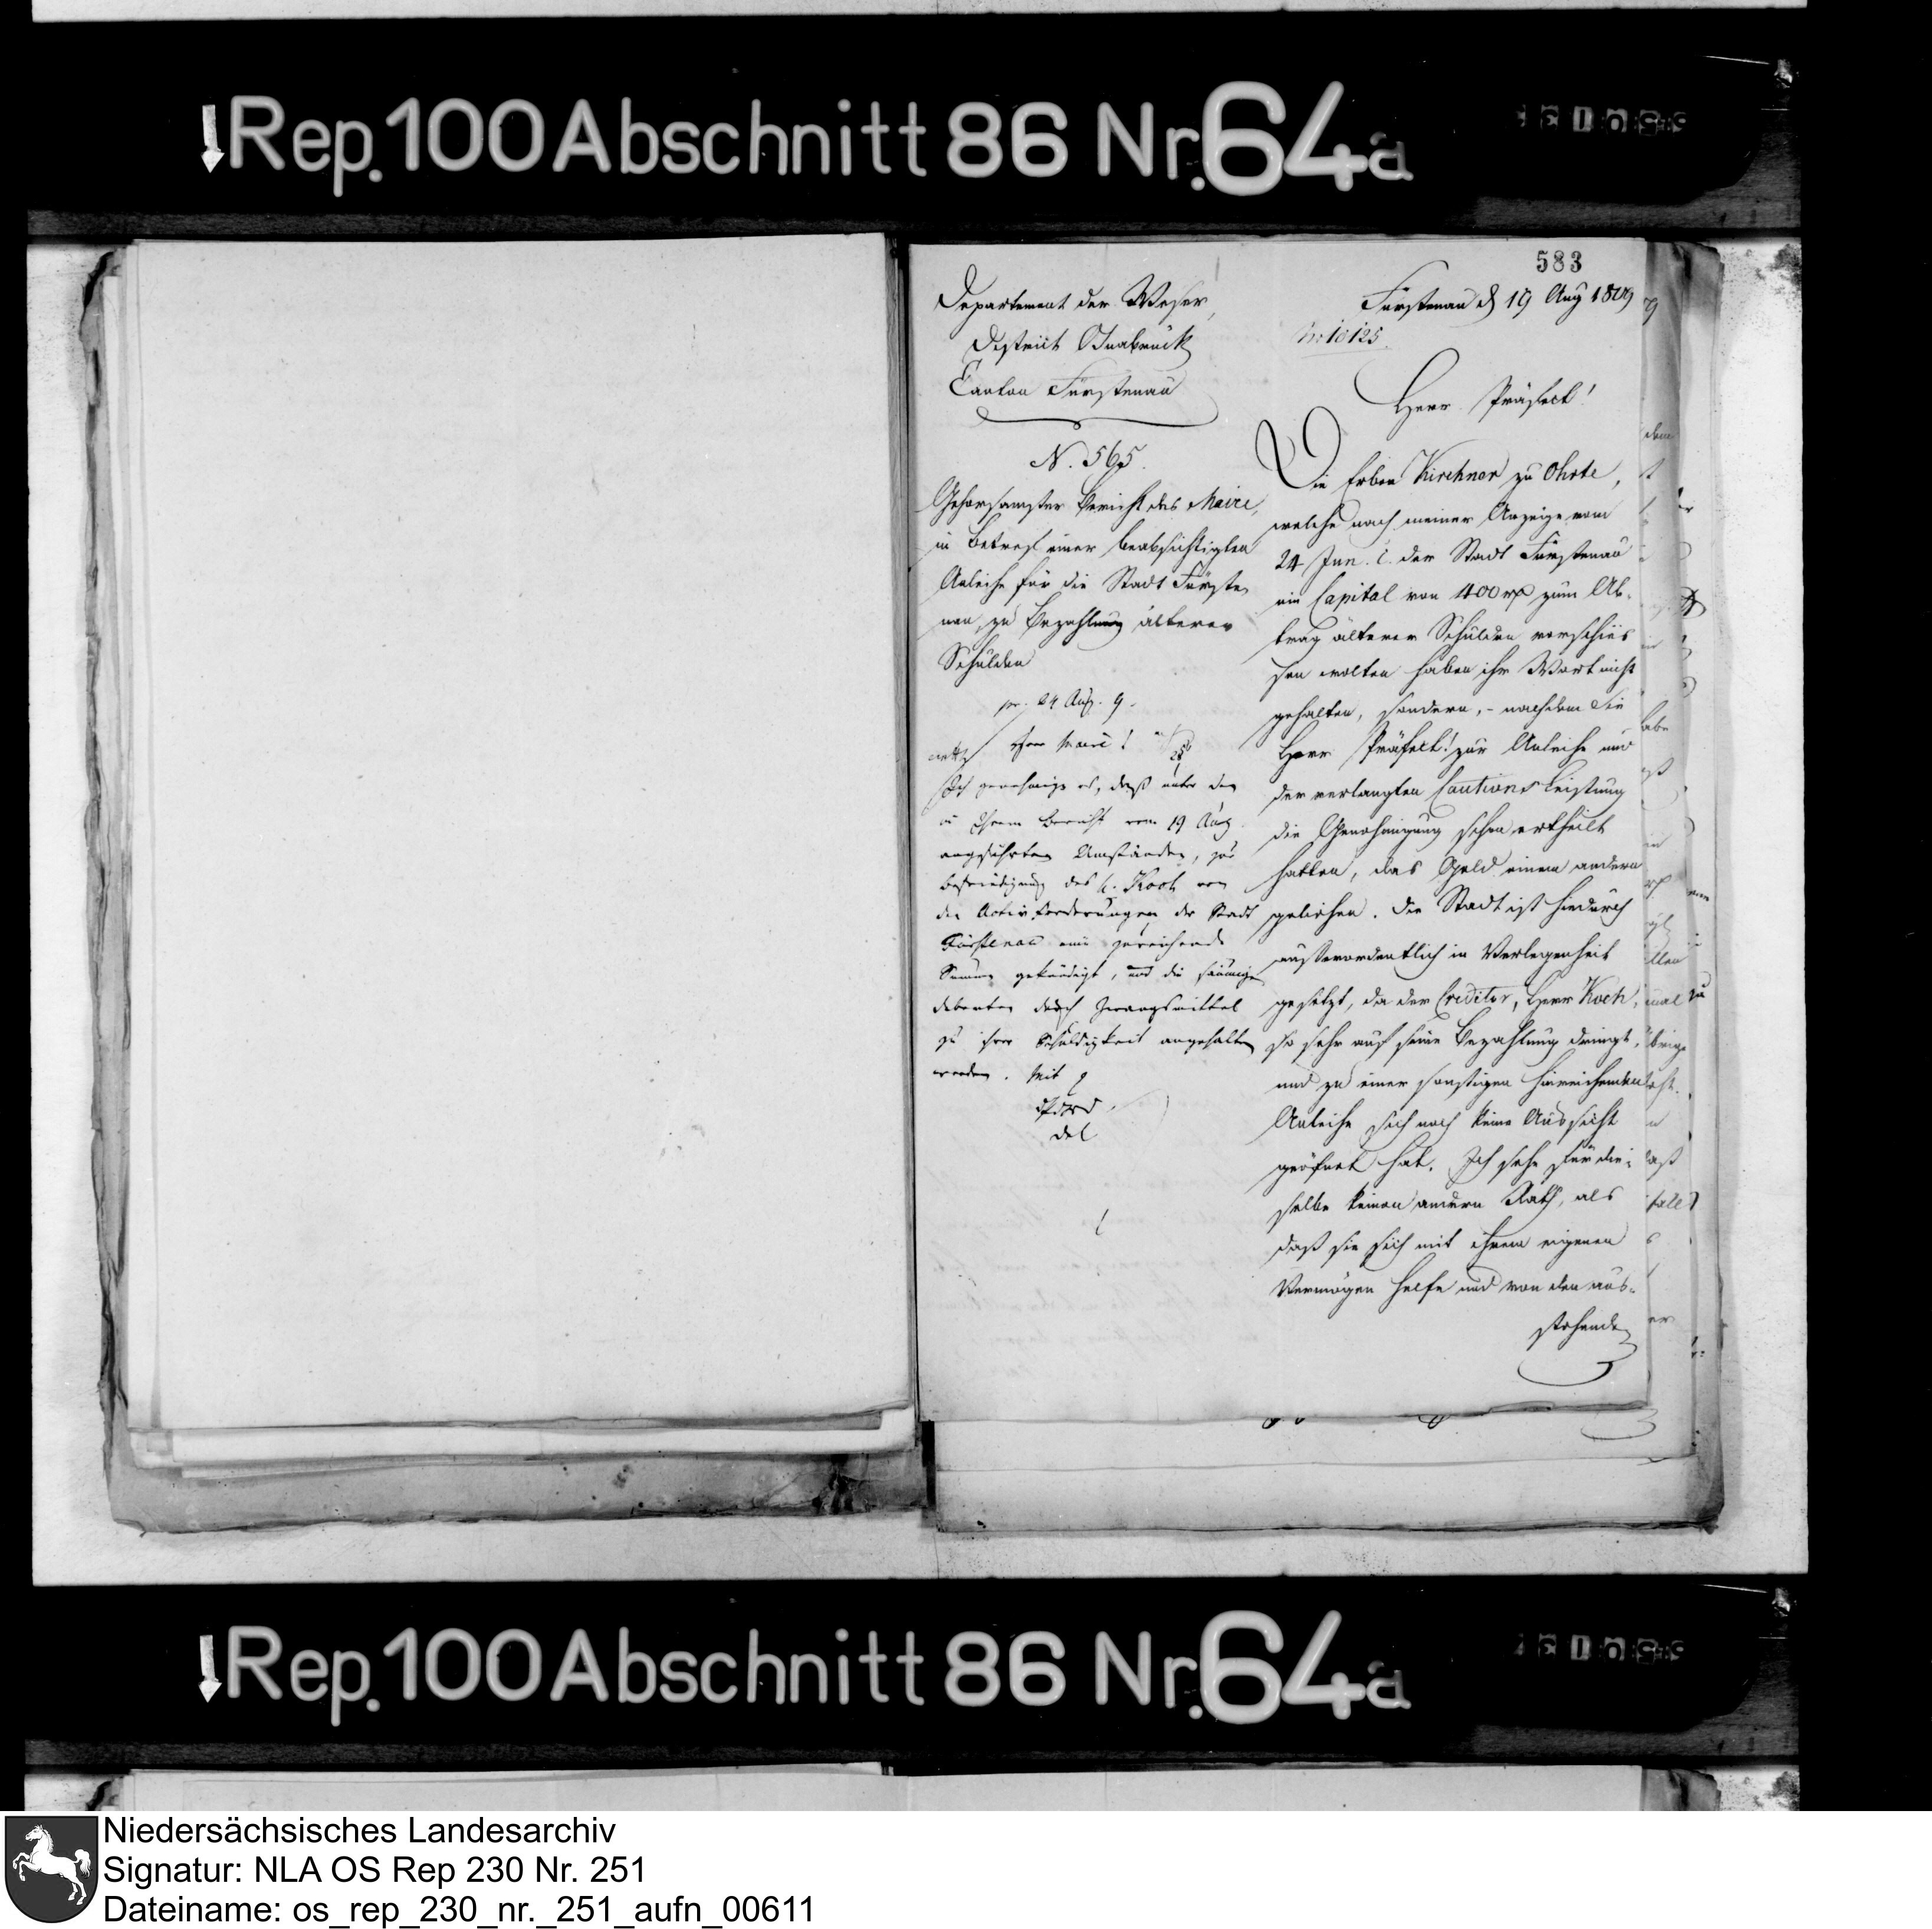 Rep. 100 Abschnitt 86 Nr. 64a
583
Departement der Weser,
District Osnabrück
Canton Fürstenau
N. 565.
Gehorsamster Bericht des Maire,
in Betref einer beabsichtigten
Anleihe für die Stadt Fürste
nau zu Bezahlung älterer
Schulden
pr. 24 Aug. 9.
Herr Maire!
Ich genehmige es, daß unter den
in Ihrem Bericht vom 19 Aug.
angeführten Umständen, zur
Befriedigung des H. Koch von
den Activ forderungen der Stadt
Fürstenau eine zureichende
Summe gekündigt, und die säumigen
debenten durch Zwangsmittel
zu ihrer Schuldigkeit angehalten
werden. Mit
Fürstenau d 19 Aug 1809
N: 10125.
Herr Präfect!
Die Erben Kirchner zu Ohrte,
welche nach meiner Anzeige vom
24 Jun. c. der Stadt Fürstenau
ein Capital von 1100 rp zum Ab-
trag älterer Schulden vorschies
sen wolten haben ihr Wort nicht
gehalten, sondern, - nachdem Sie
Herr Präfect! zur Anleihe und
der verlangten Cautions Leistung
die Genehmigung schon ertheilt
hatten, das Geld einem andern
geliehen. Die Stadt ist hiedurch
außerordentlich in Verlegenheit
gesetzt, da der Creditor, Herr Koch,
so sehr auf seine Bezahlung dringt,
und zu einer sonstigen hinreichenden
Anleihe sich noch keine Aussicht
geöfnet hat. Ich sehe für die-
selbe keinen andern Rath, als
daß sie sich mit ihrem eigenen
Vermögen helfe und von den aus-
stehenden
Rep. 100 Abschnitt 86 Nr. 64a
Niedersächsisches Landesarchiv
Signatur: NLA OS Rep 230 Nr. 251
Dateiname: os_rep_230_nr._251_aufn_00611